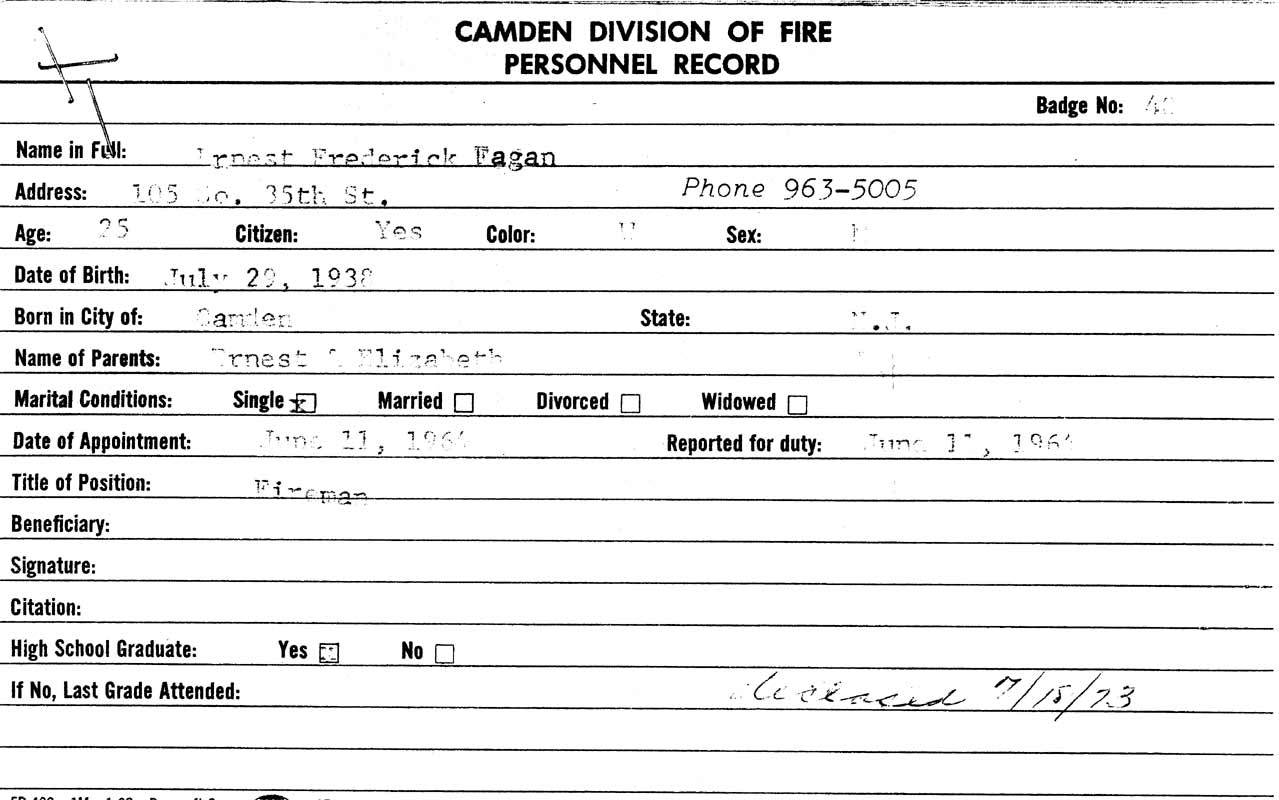 CAMDEN DIVISION OF FIRE
PERSONNEL RECORD
Badge No:
Name in Full: Ernest Frederick Fagan
Address: 105 So. 35th St. Phone 963-5005
Age: 25 Citizen: Yes Color: W Sex: M
Date of Birth: July 29, 1938
Born in City of: Camden State: N.J.
Name of Parents: Ernest & Elizabeth
Marital Conditions: Single x Married Divorced Widowed
Date of Appointment: June 11, 1964 Reported for duty: June 11, 1964
Title of Position: Fireman
Beneficiary:
Signature:
Citation:
High School Graduate: Yes No
If No, Last Grade Attended: deceased 7/18/73